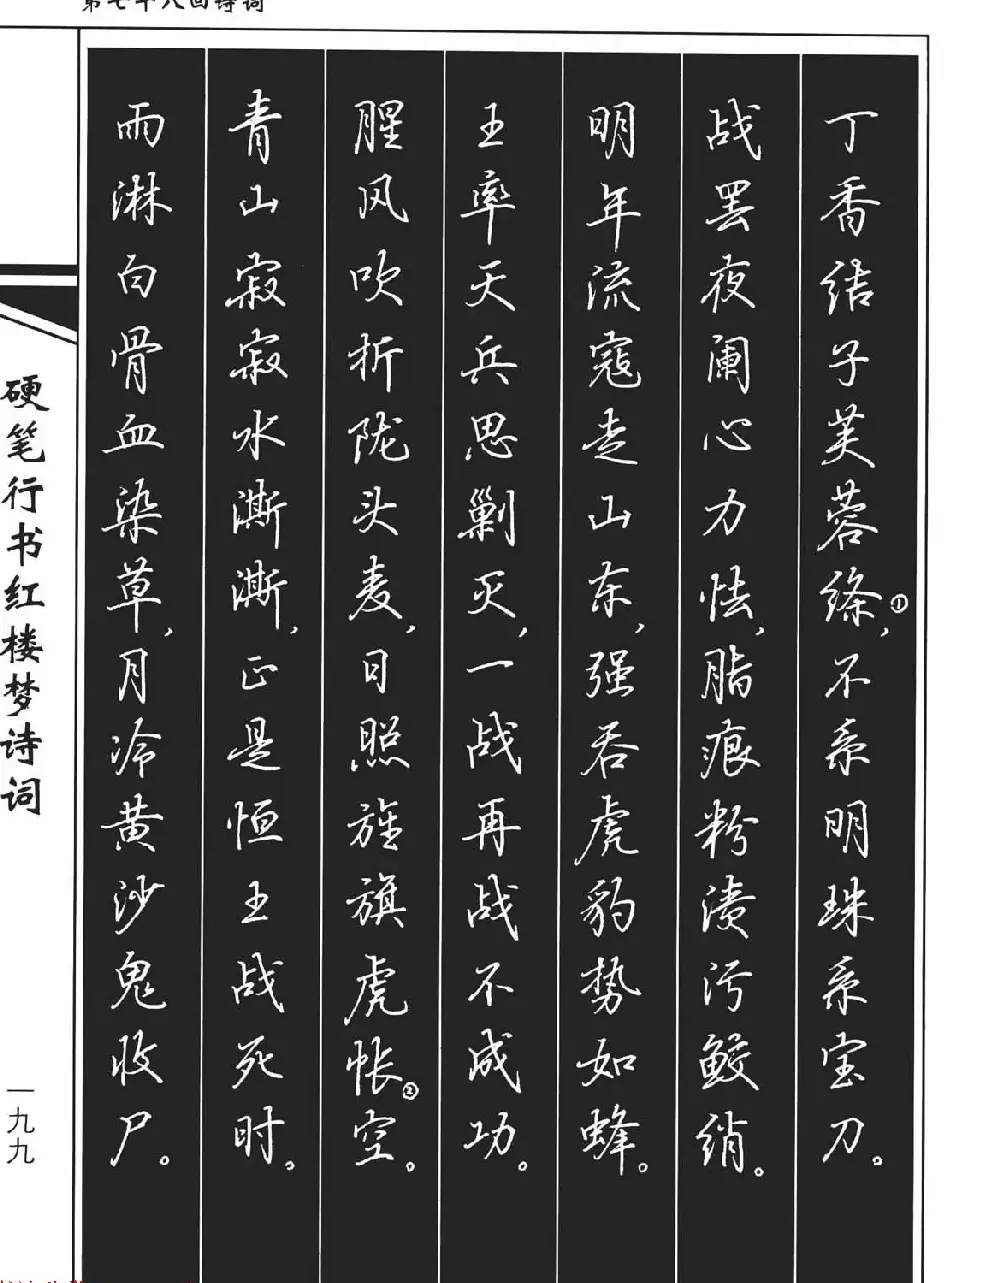 第七十八回诗词
丁香结子芙蓉绦①,不系明珠系宝刀。
战罢夜阑心力怯,脂痕粉渍污鲛绡。
明年流寇走山东,强吞虎豹势如蜂。
王率天兵思剿灭,一战再战不成功。
腥风吹折陇头麦,日照旌旗虎帐②空。
青山寂寂水澌澌,正是恒王战死时。
雨淋白骨血染草,月冷黄沙鬼收尸。
硬笔行书红楼梦诗词
一九九